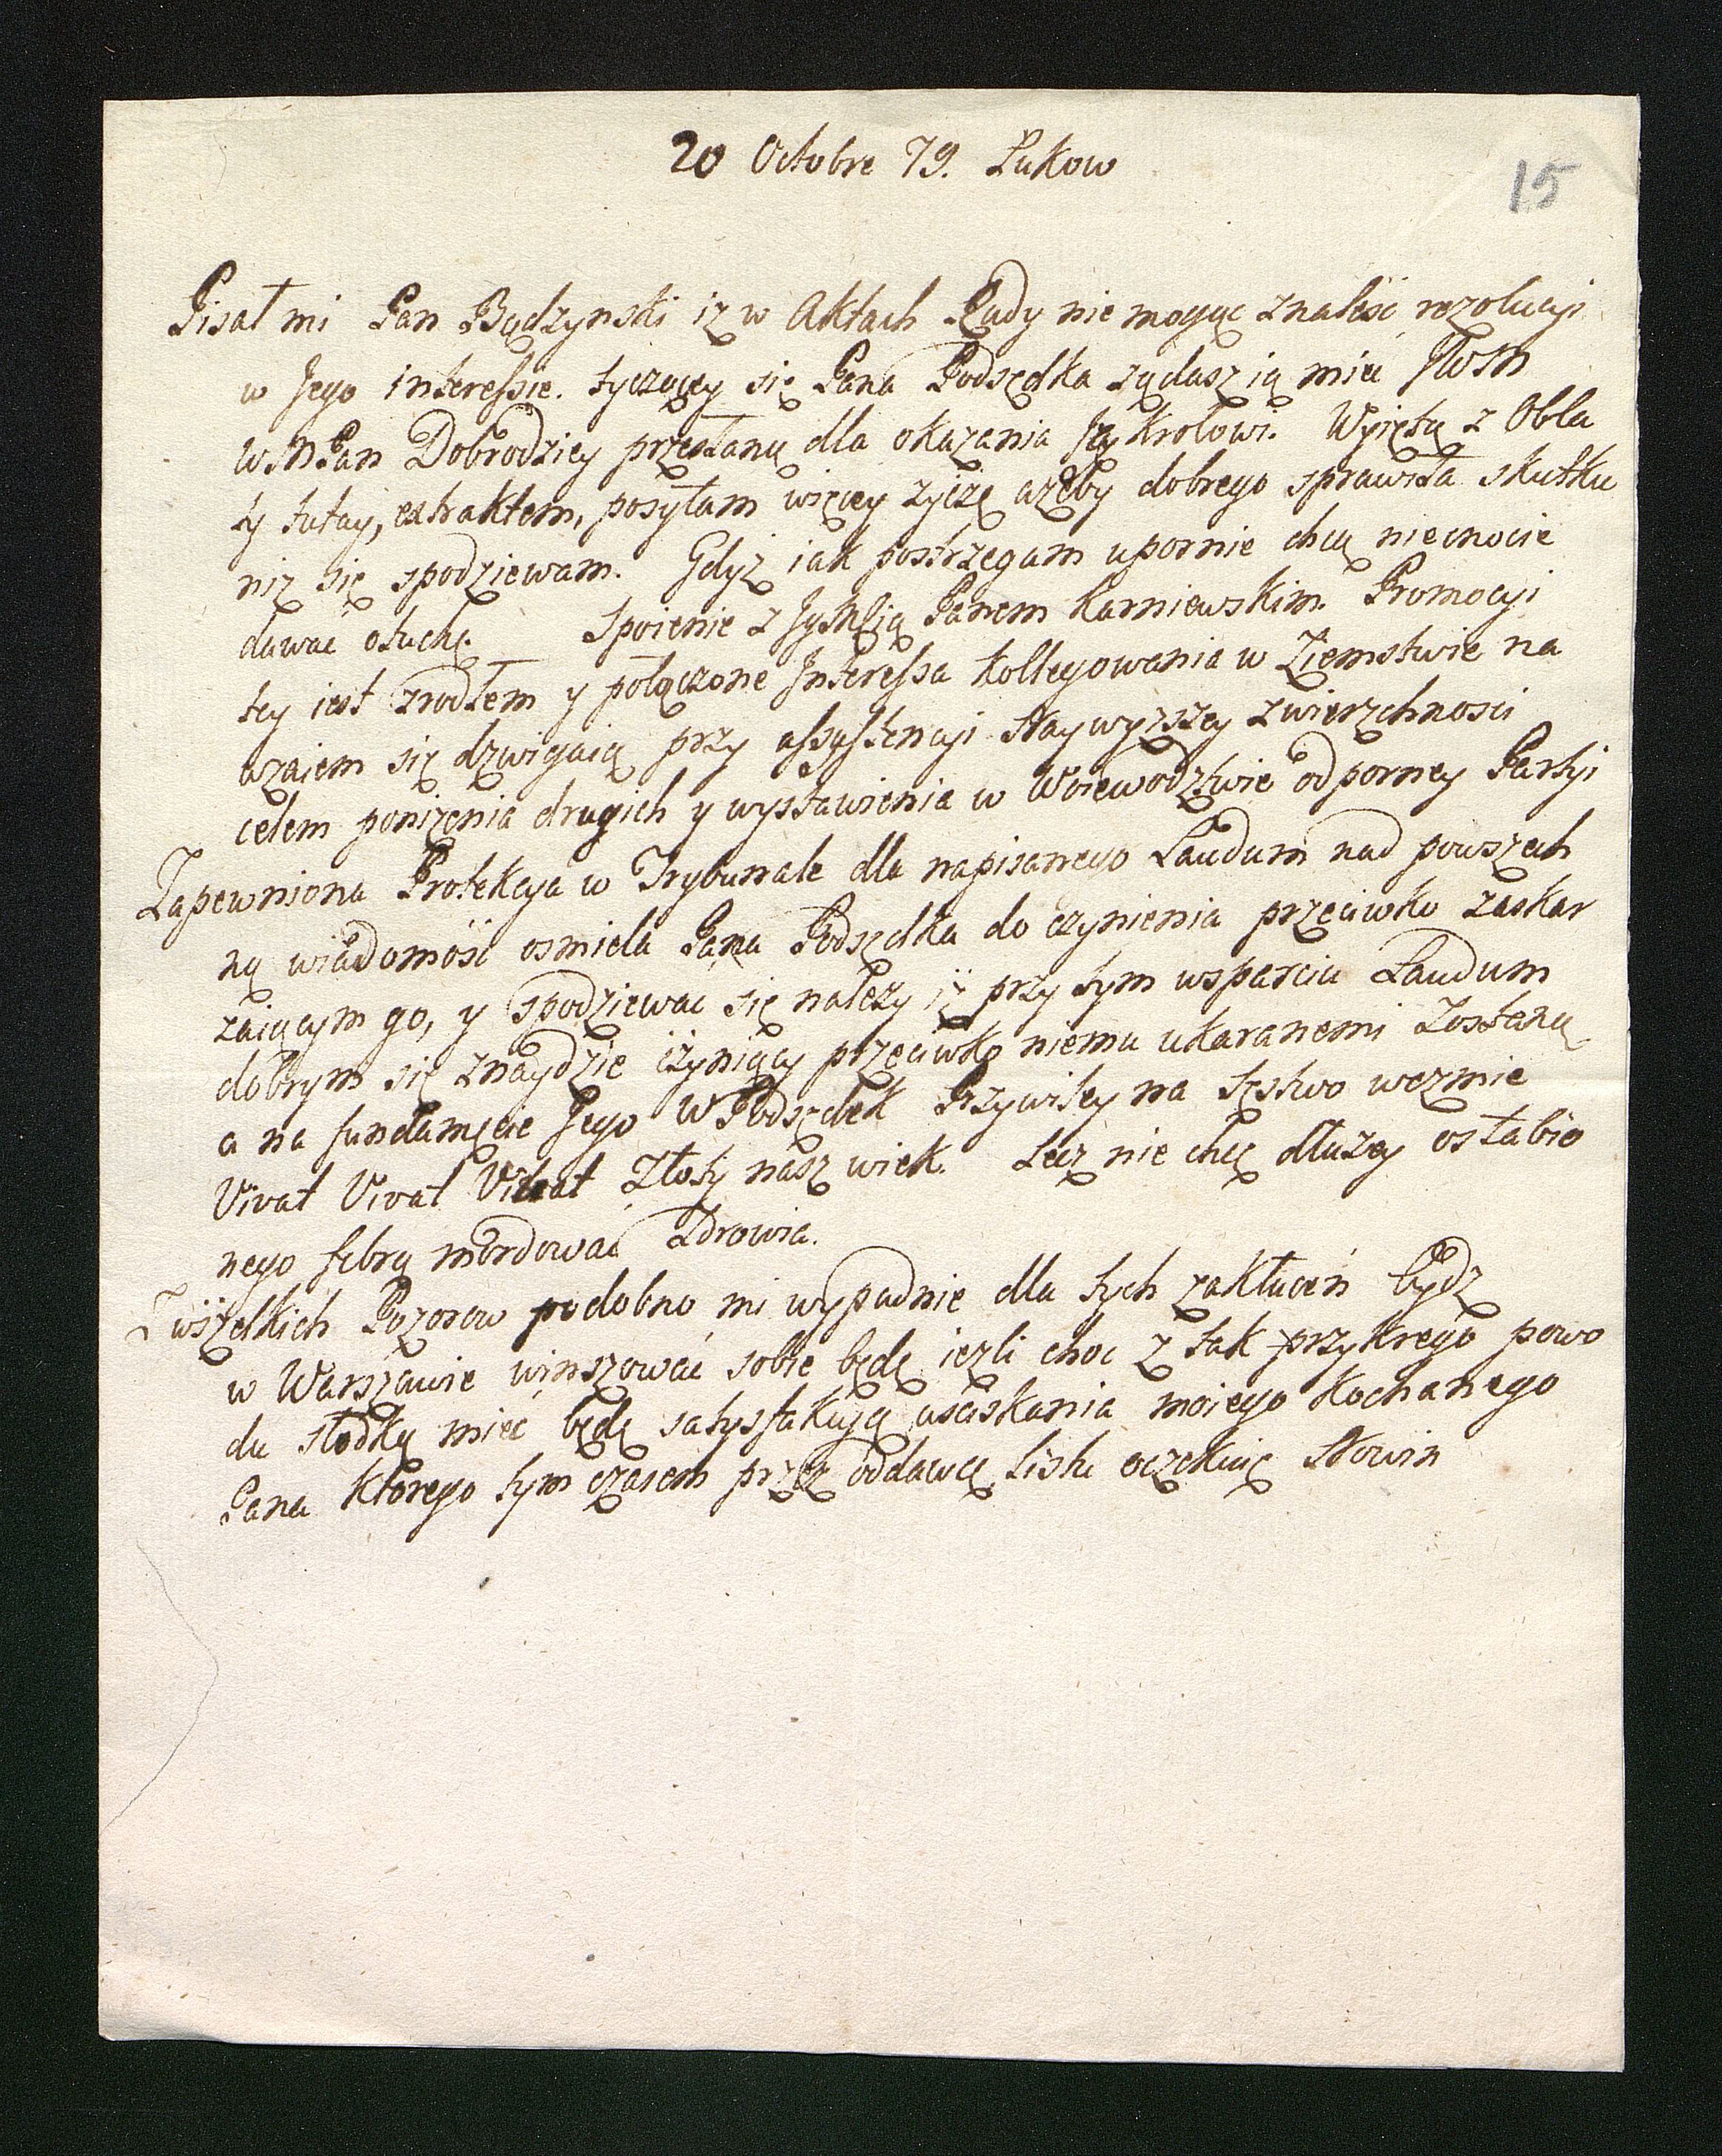 20 Octobre 79. Łukow
15
Pisał mi Pan Bądzynski iz w Aktach Rady nie mogąc znaleść rezolucyi
w Jego interessie. tyczącey się Pana Podsędka żądasz ią mieć JWM
WMPan Dobrodziey przesłaną dla okazania Krolowi. Wyiętą z Obla
ty tutay, extraktem, posyłam więcey życzę azeby dobrego sprawiła skutku
niz się spodziewam. Gdyż iak postrzegam upornie chcą niecnocie
dawać otuchę. Spoienie z Panem Karniewskim. Promocyi
tey iest zrodłem y połączone Interessa kollegowania w Ziemstwie na
wzaiem się dzwigaią przy assystencyi Naywyższey zwierzchnosci
celem poniżenia drugich y wystawienia w Woiewodztwie odporney Partyi
Zapewniona Protekcya w Trybunale dla napisanego Laudum nad powszech
ną wiadomość osmiela Pana Podsędka do czynienia przeciwko zaskar
zaiącym go, y spodziewac się należy iż przy tym wsparciu Laudum
dobrym się znaydzie czyniący przeciwko niemu ukaranemi zostaną
a na fundamęcie Jego W Podsędek Przywiley na sęstwo wezmie
Vivat Vivat Vivat Złoty nasz wiek. Lecz nie chcę dłużey osłabio
nego febrą mordować Zdrowia.
Z wszelkich Pozorow podobno mi wypadnie dla tych zakłuceń bydz
w Warszawie winszować sobie będę iezli choc z tak przykrego powo
du słodką mieć będę satysfakcyą uściskania moiego Kochanego
Pana Ktorego tym czasem przez oddawcę listu oczekuię Nowin